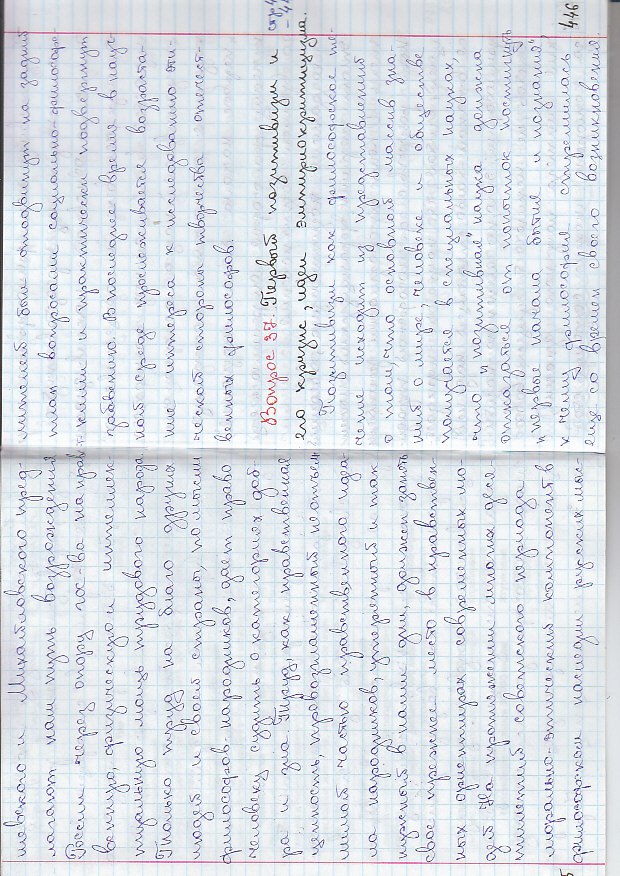 шевского и Михайловского пред-
лагают нам путь возрождения
России через опору гос-ва на нрав-
венную, физическую и интеллек-
туальную мощь трудового народа.
Только труд на благо других
людей и своей страны, по мысли
философов-народников, дает право
человеку судить о категориях доб-
ра и зла. Труд, как нравственная
ценность, провозглашенный неотъем-
лимой частью нравственного идеа-
ла народников, утерянный и так
нужный в наши дни, должен занять
свое прежнее место в нравствен-
ных ориентирах современных лю-
дей. На протяжении многих деся-
тилетий советского периода
морально-этический компонент в
философском наследии русских мыс-
5
лителей был отодвинут на задний
план вопросами социально-философс-
кими и практически подвергнут
забвению. В последнее время в науч-
ной среде прослеживается возраста-
ние интереса к исследованию эти-
ческой стороны творчества отечест-
венных философов.
Вопрос 37. Первый позитивизм и
его кризис, идеи эмпириокритицизма.
Позитивизм как философское те-
чение исходит из представлений
о том, что основной массив зна-
ний о мире, человеке и обществе
получается в специальных науках,
что "позитивная" наука должна
отказаться от попыток постигнуть
"первые начала бытия и познания",
к чему философия стремилась
еще со времен своего возникновения.
446